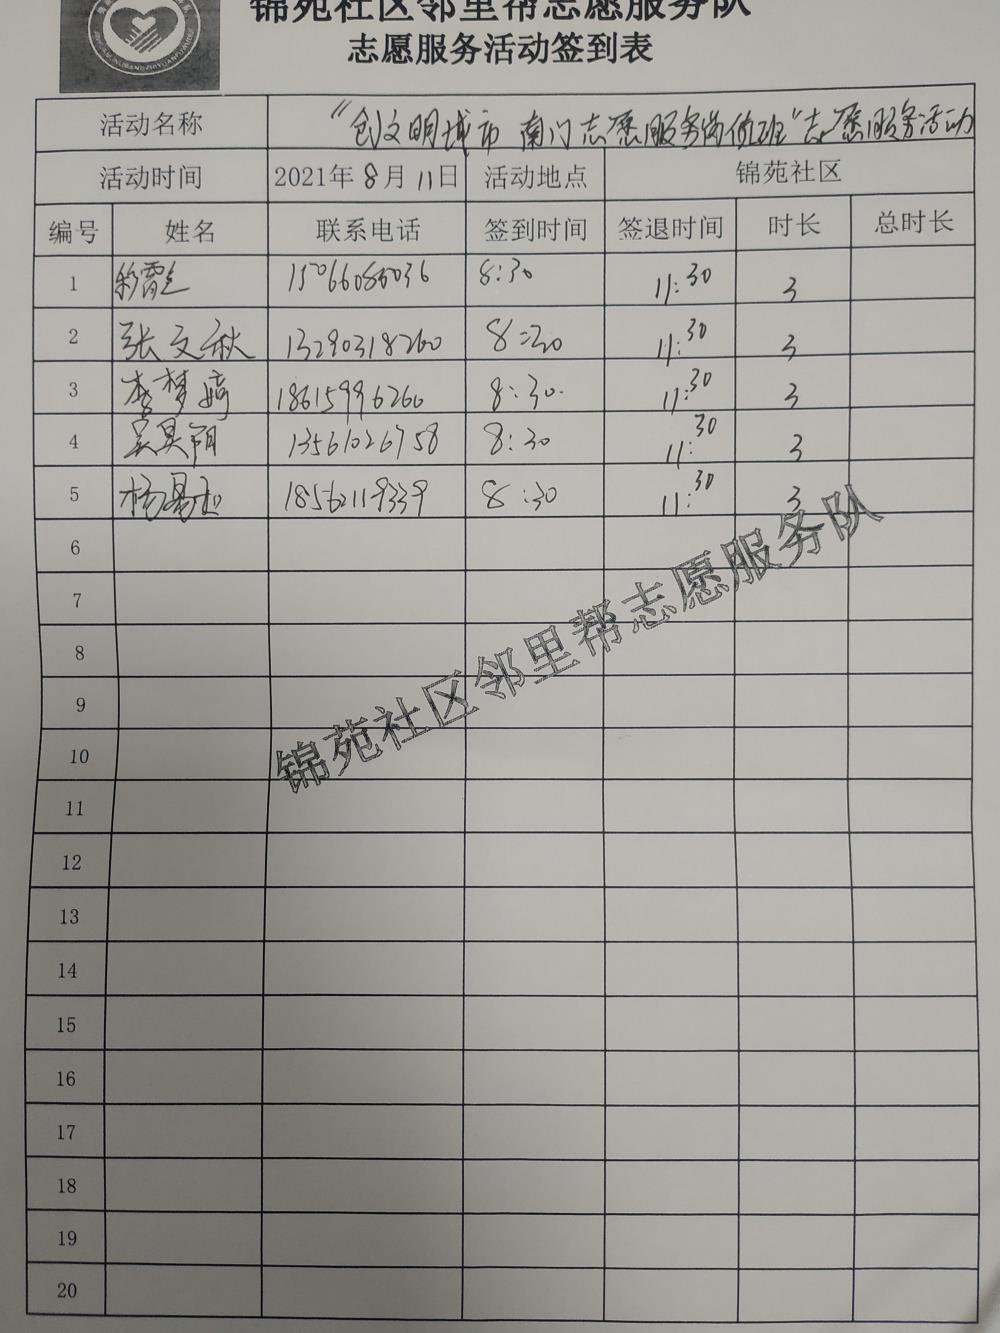 锦苑社区邻里帮志愿服务队
志愿服务活动签到表
活动名称 “创文明城市 南门志愿服务岗值班”志愿服务活动
活动时间 2021年8月11日 活动地点 锦苑社区
编号 姓名 联系电话 签到时间 签退时间 时长 总时长
1 15066086036 8:30 11:30 3
2 张文秋 13290318260 8:30 11:30 3
3 李梦婷 18615996260 8:30. 11:30 3
4 吴昊朔 13561026758 8:30 11:30 3
5 杨 18562119339 8:30 11:30 3
6
7
8
9
10
11
12
13
14
15
16
17
18
19
20
锦苑社区邻里帮志愿服务队